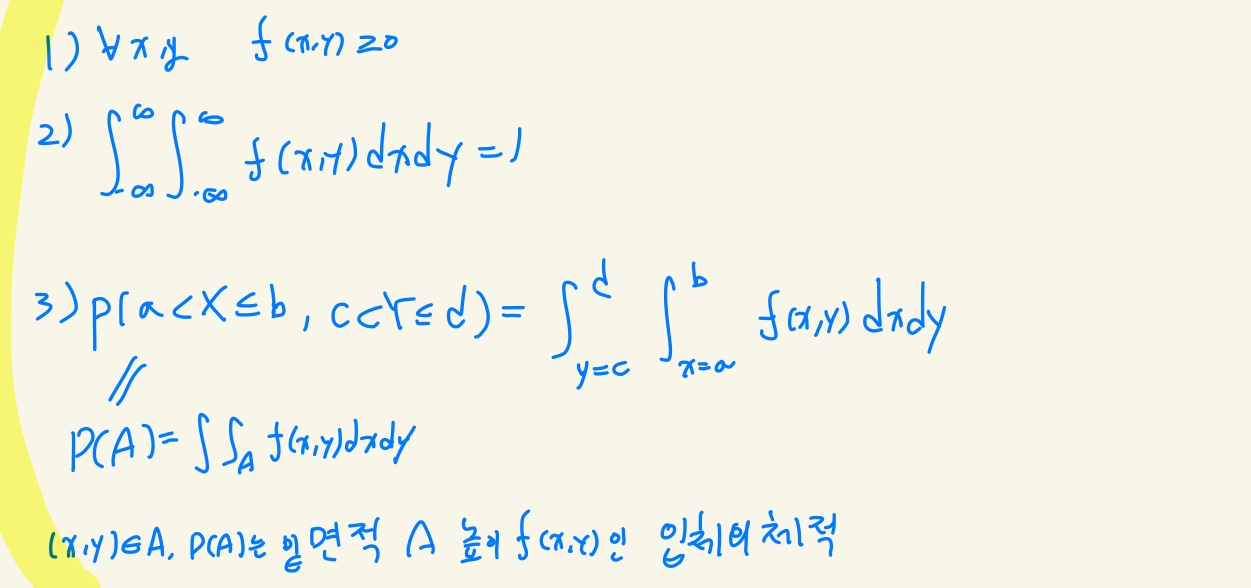 1) ∀x,y f(x,y) ≥0
2) ∫_{-∞}^{∞} ∫_{-∞}^{∞} f(x,y) dxdy = 1
3) P(a<X≤b, c<Y≤d) = ∫_{y=c}^{d} ∫_{x=a}^{b} f(x,y) dxdy
//
P(A)= ∫∫_A f(x,y)dxdy
(x,y)∈A, P(A)는 밑면적 A 높이 f(x,y)인 입체의 체적